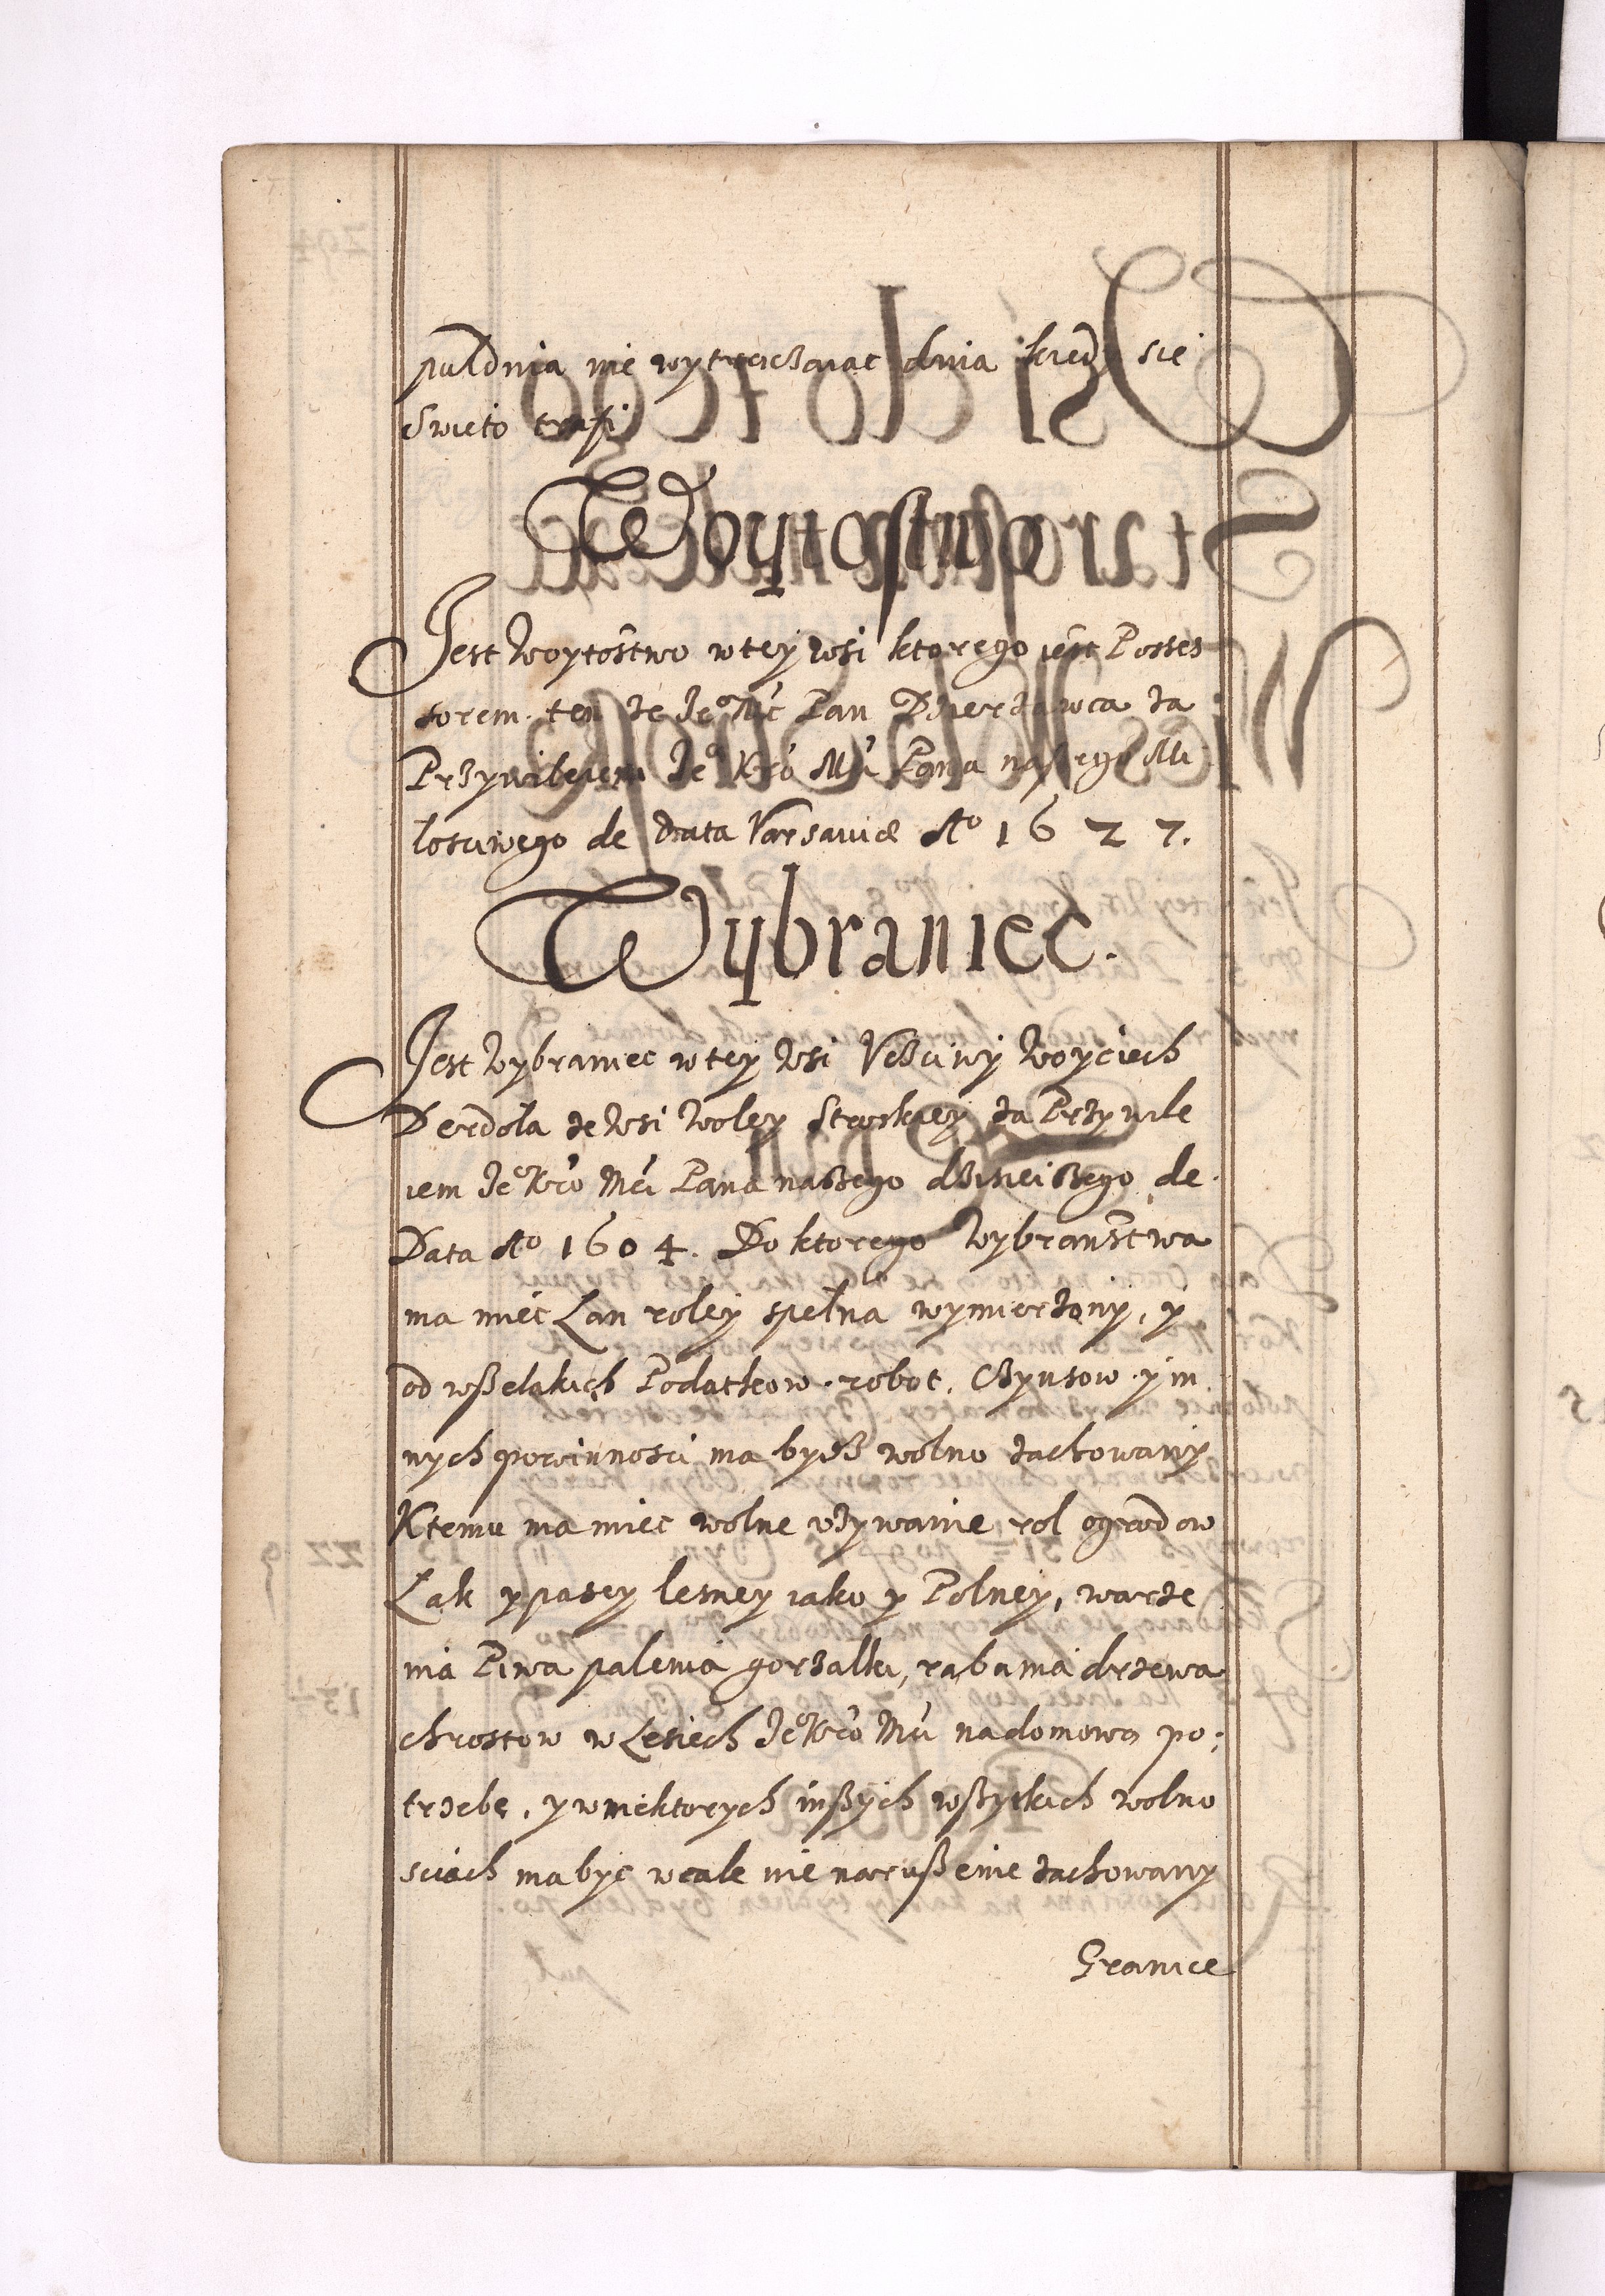 puldnia nie wytrącząiąc dnia kiedy sie
Swieto trafi
Woytostwo
Jest Woytostwo w tey wsi ktorego iest Posses
sorem ten że Jeº Mć Pan Dzierżawca za
Przywileiem Jeº Kró Mći Pana naszego Mi
losciwego de Data Varsaviæ Aº 1627.
Wybraniec.
Jest Wybraniec w tey Wsi Vcżciwy Woyciech
Derdola ze Wsi Woley Stroskiey za Przywile
iem Jeº Kró Mći Pana naszego dzisieiszego de
Data Aº 1604. Do ktorego Wybraństwa
ma mieć Lan roley spełna wymierzony, y
od wßelakich Podatkow. robot. Czynsow. y in
nych powinnosci ma bydz wolno zachowany
Ktemu ma miec wolne vzywanie rol ogrodow
Ląk y pasey lesney iako y Polney, warze
nia Piwa palenia gorzalki, rąbania drzewa
chrostow w Lesiech Jeº Kró Mći na domową po:
trzebę, y w niektorych inßych wßytkich wolno
sciach ma byc wcale nie narußenie zachowany
Granice